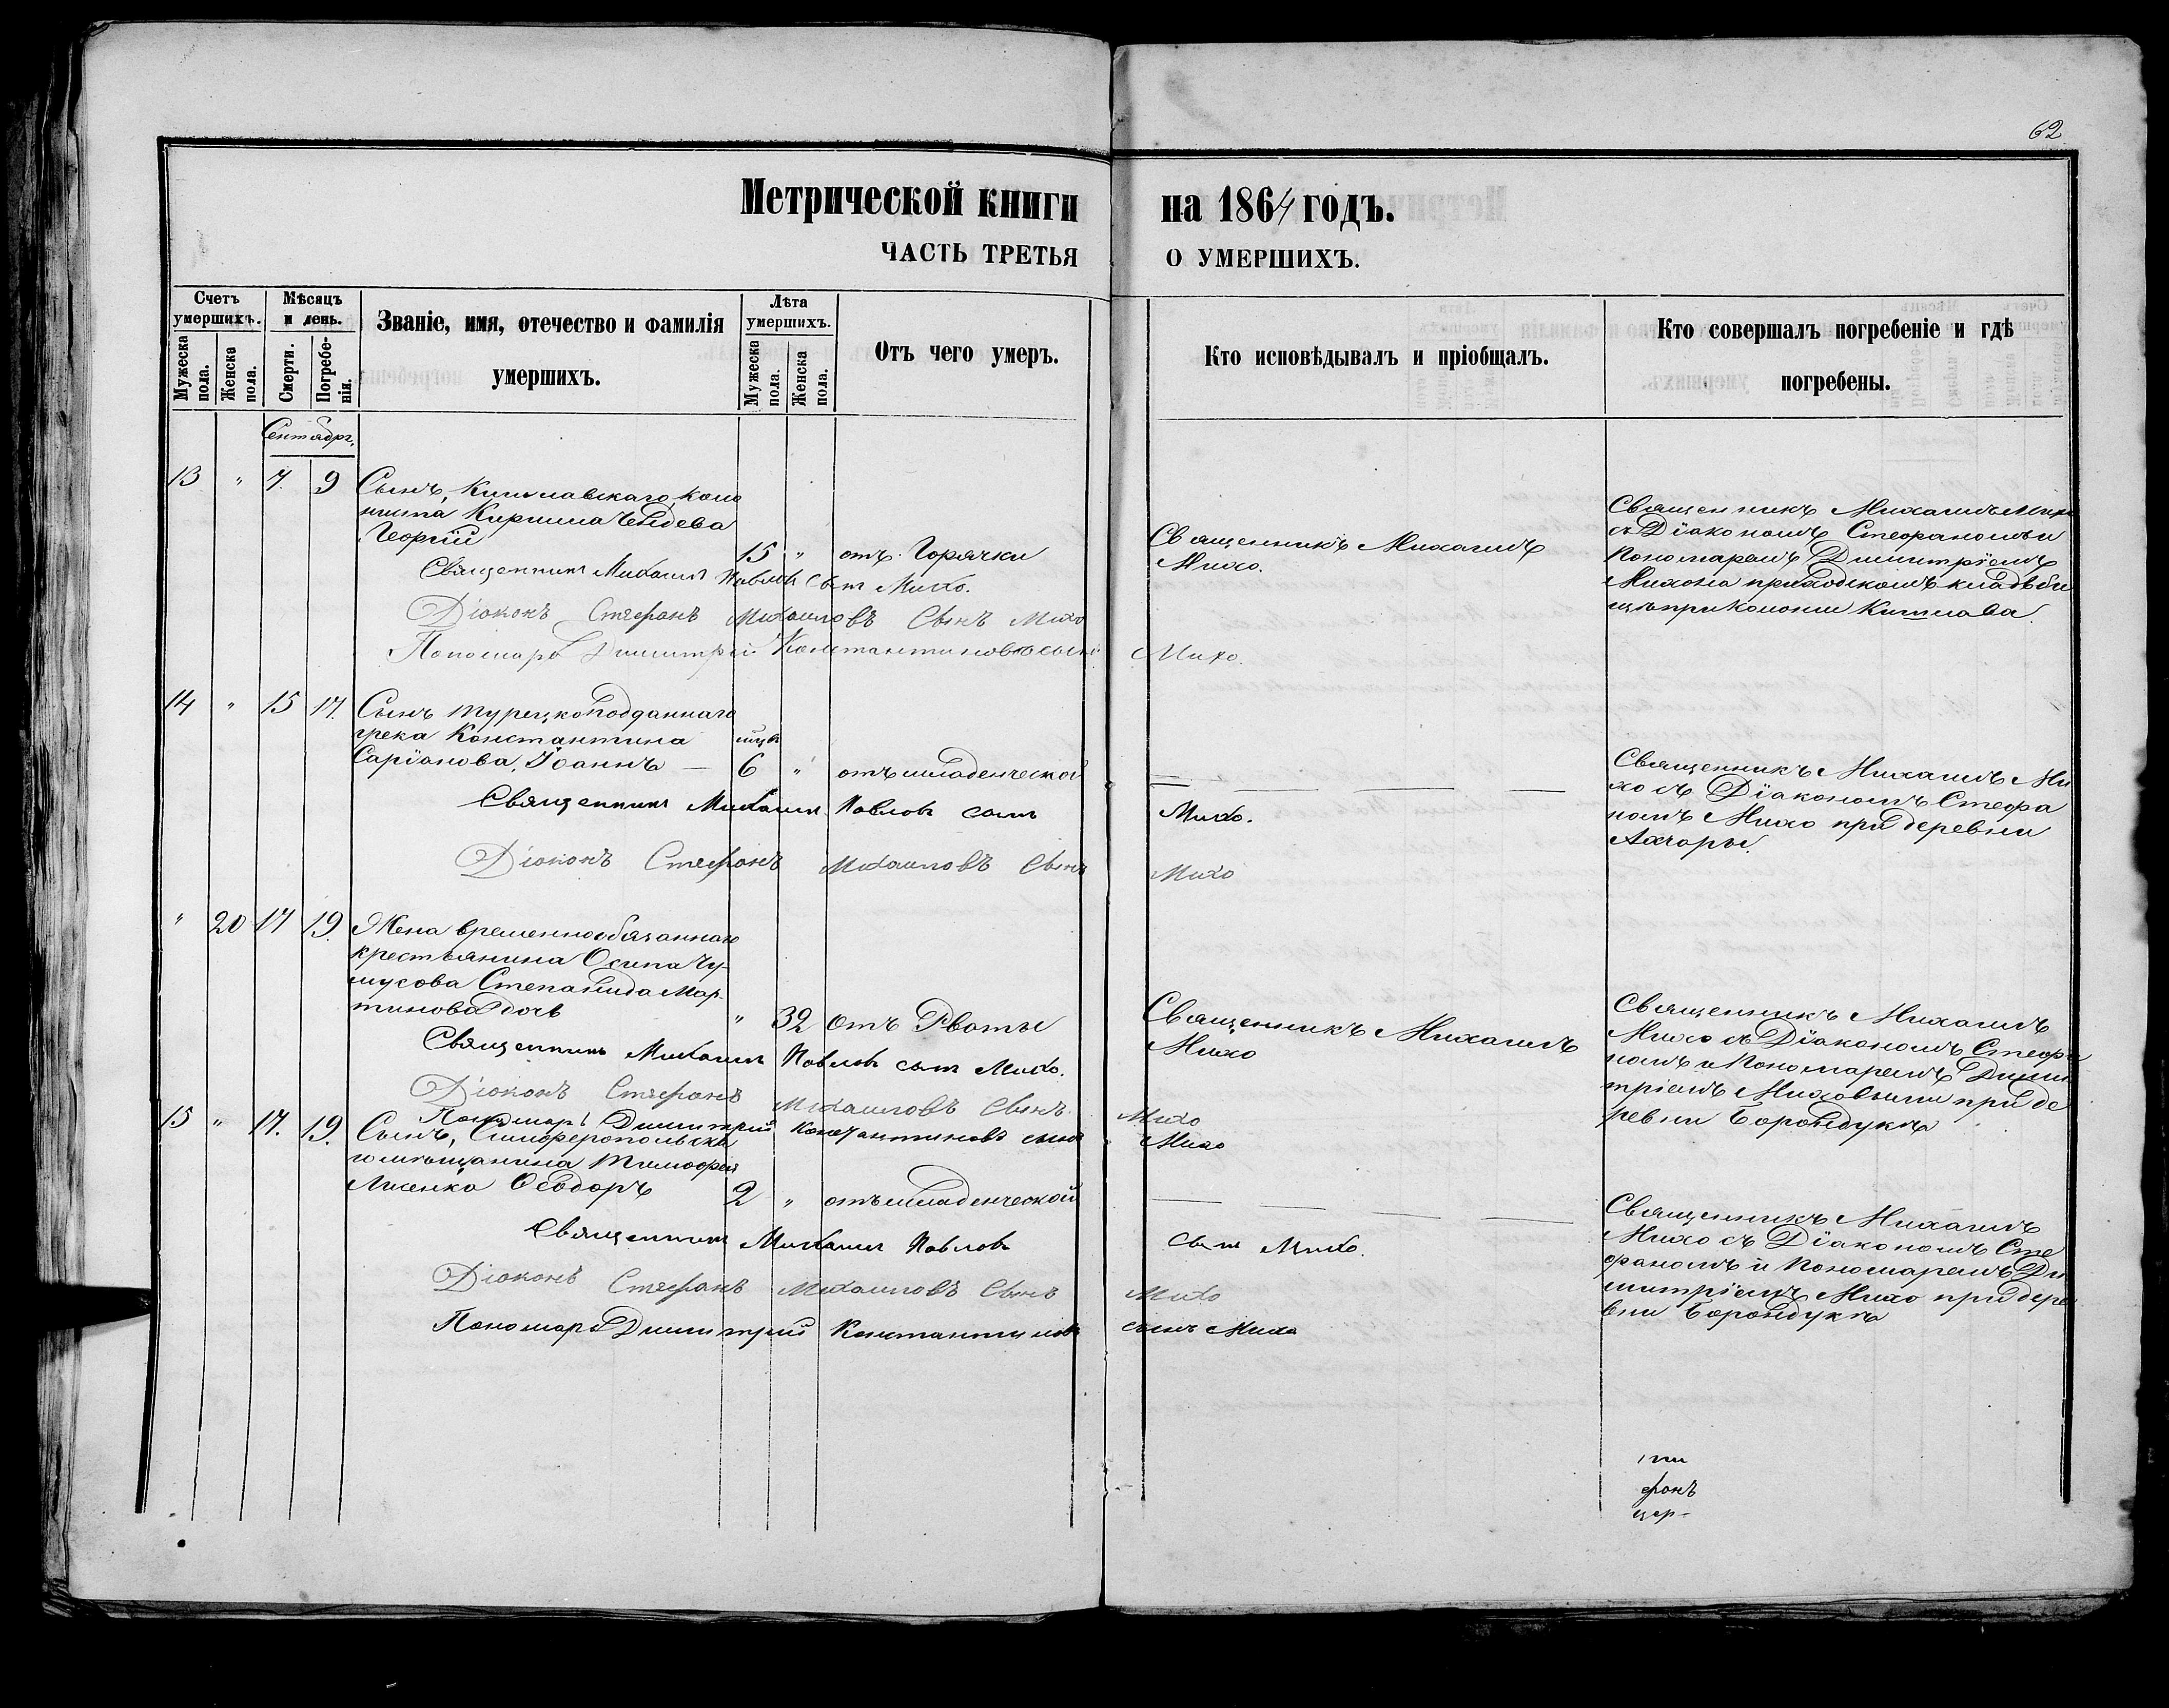 62
Метрической книги на 1864 годъ.
ЧАСТЬ ТРЕТЬЯ О УМЕРШИХЪ.
Счетъ умершихъ.
Мужеска пола.
Женска пола.
Мѣсяцъ и день.
Смерти.
Погребенія.
Званіе, имя, отечество и фамилія умершихъ.
Лѣта умершихъ.
Мужеска пола.
Женска пола.
Отъ чего умеръ.
Кто исповѣдывалъ и пріобщалъ.
Кто совершалъ погребеніе и гдѣ погребены.
Сентябрь.
13 " 7. 9
Сынъ, Кишлавскаго, коло
ниста Кирилла
Георгій
15 " отъ Горячки
Священникъ Михаилъ
Михо.
Священникъ Михаилъ Михо
съ Діакономъ Стефаномъ и
Пономаремъ Димитріемъ
Михо на приходскомъ кладъби
щѣ при Колоніи Кишлава.
Священникъ Михаилъ Павловъ сынъ Михо.
Діаконъ Стефанъ Михаиловъ Сынъ Михо
Пономарь Димитрій Константиновъ сынъ Михо.
14 " 15 17.
Сынъ турецкоподданнаго
грека Константина
Саріанова, Іоаннъ —
мцъ
6 " отъ младенческой
Священникъ Михаилъ Ми
хо съ Діакономъ Стефа
номъ Михо при деревни
Ахчоры.
Священникъ Михаилъ Павловъ сынъ Михо.
Діаконъ Стефанъ Михаиловъ Сынъ Михо
" 20 17 19.
Жена временнообязаннаго
крестьянина Осипа Чу-
мусова Степанида Мар-
тинова дочь
" 32 отъ Рвоты
Священникъ Михаилъ
Михо
Священникъ Михаилъ
Михо съ Діакономъ Стефа
номъ и Пономаремъ Дими
тріемъ Миховыми при де
ревни Борондукъ
Священникъ Михаилъ Павловъ сынъ Михо.
Діаконъ Стефанъ Михаиловъ Сынъ Михо
Пономарь Димитрій Константиновъ сынъ Михо
15 " 17. 19.
Сынъ, Симферопольска
го мѣщанина Тимофея
Лисенко Ѳеодоръ
2 " отъ младенческой
Священникъ Михаилъ
Михо съ Діакономъ Сте
фаномъ и Пономаремъ Ди
митріемъ Михо при дере
вни Борондукъ
Священникъ Михаилъ Павловъ сынъ Михо.
Діаконъ Стефанъ Михаиловъ Сынъ Михо
Пономарь Димитрій Константиновъ сынъ Михо
фанъ
цер-